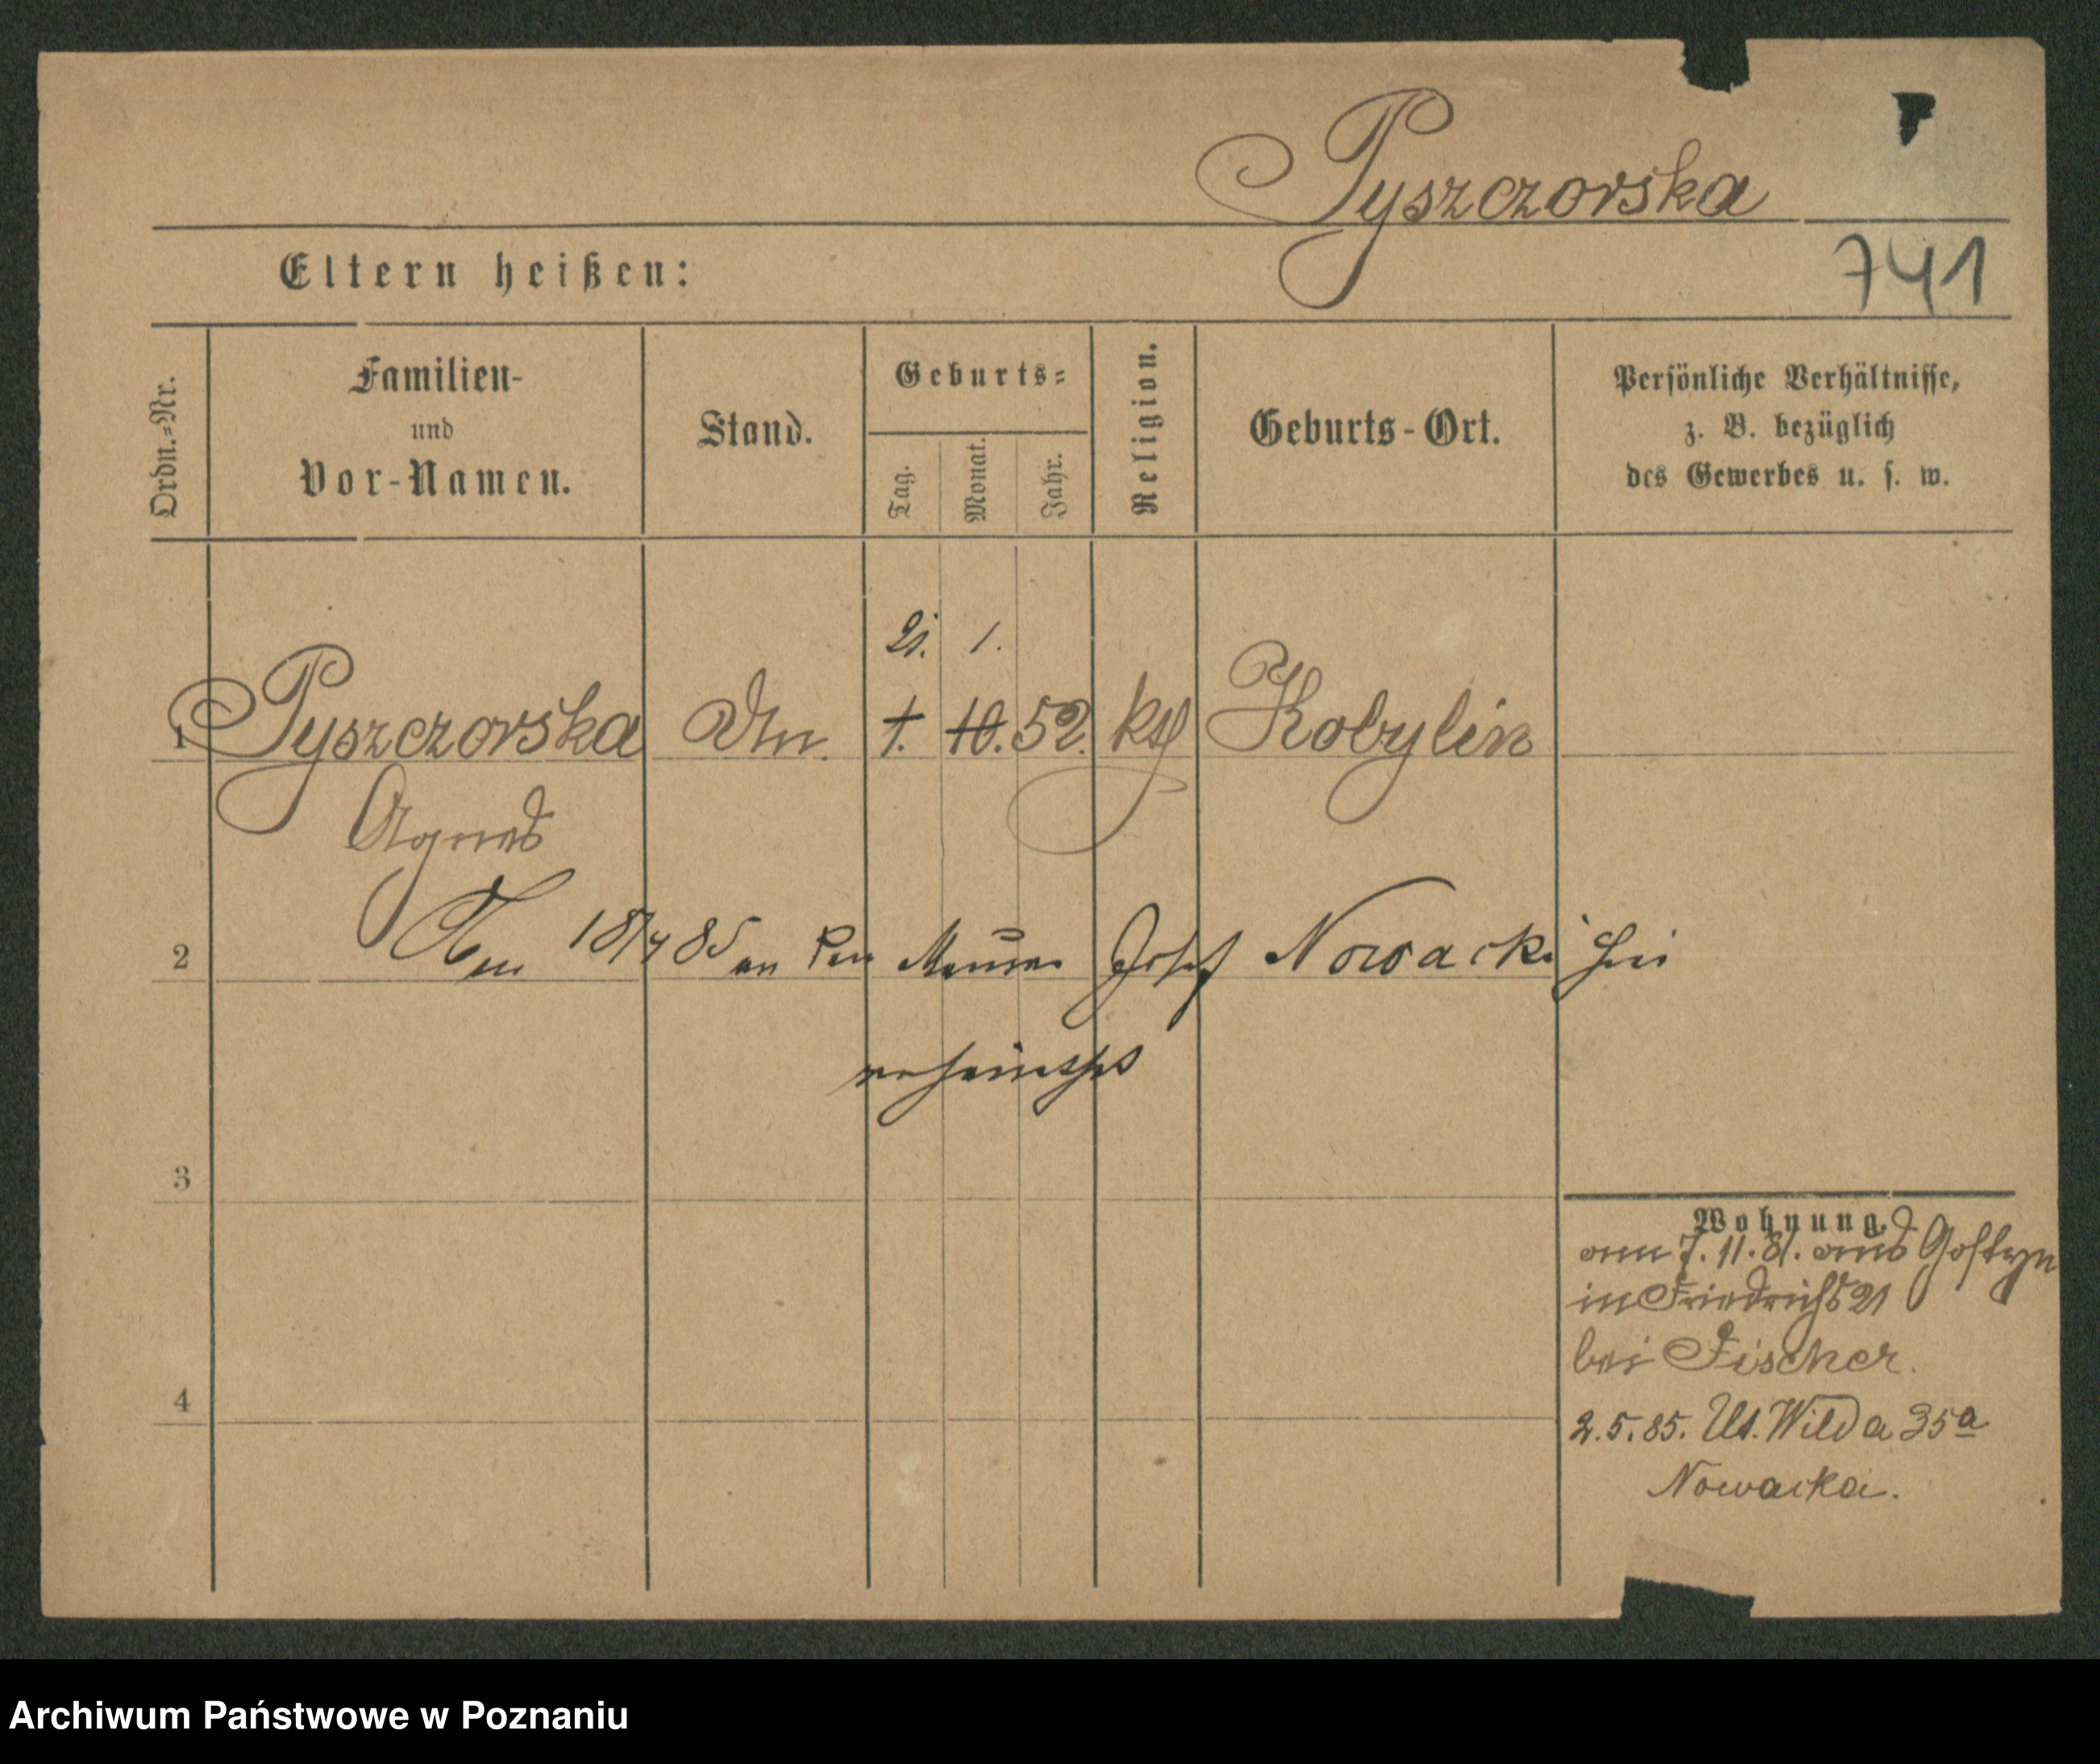 Pyszczorska
741
Eltern heißen:
Ordn.-Nr.
Familien-
und
Vor-Namen.
Stand.
Geburts-
Tag.
Monat.
Jahr.
Religion.
Geburts-Ort.
Persönliche Verhältnisse,
z. B. bezüglich
des Gewerbes u. s. w.
21. 1.
1 Pyszczorska 1. 10. 52. kth Kobylin
Agnes
2 Am 18/4 85 an den Maurer Josef Nowacki hier
verheirathet
3
4
Wohnung.
am 7.11.81. aus Gostyn
in Friedrichs 21
bei Fischer.
2.5.85. Ut. Wilda 35a
Nowacka.
Archiwum Państwowe w Poznaniu